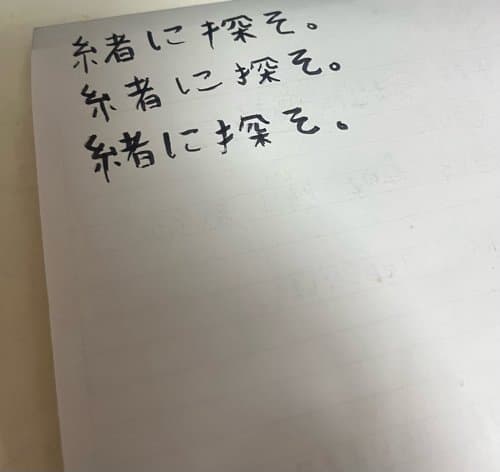 緒に探そ。
緒に探そ。
緒に探そ。